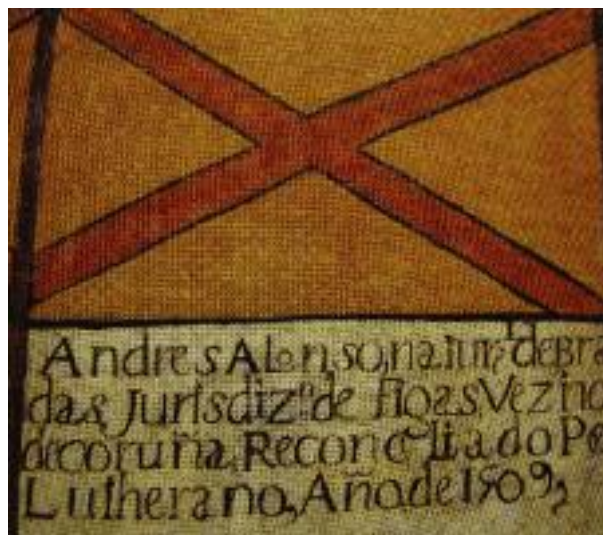 Andres Alonso, natur^l de Bra
das, Jurisdiz^n. de fioas Vezino
de coruña, Reconciliado Po
Lutherano, Año de 1509,